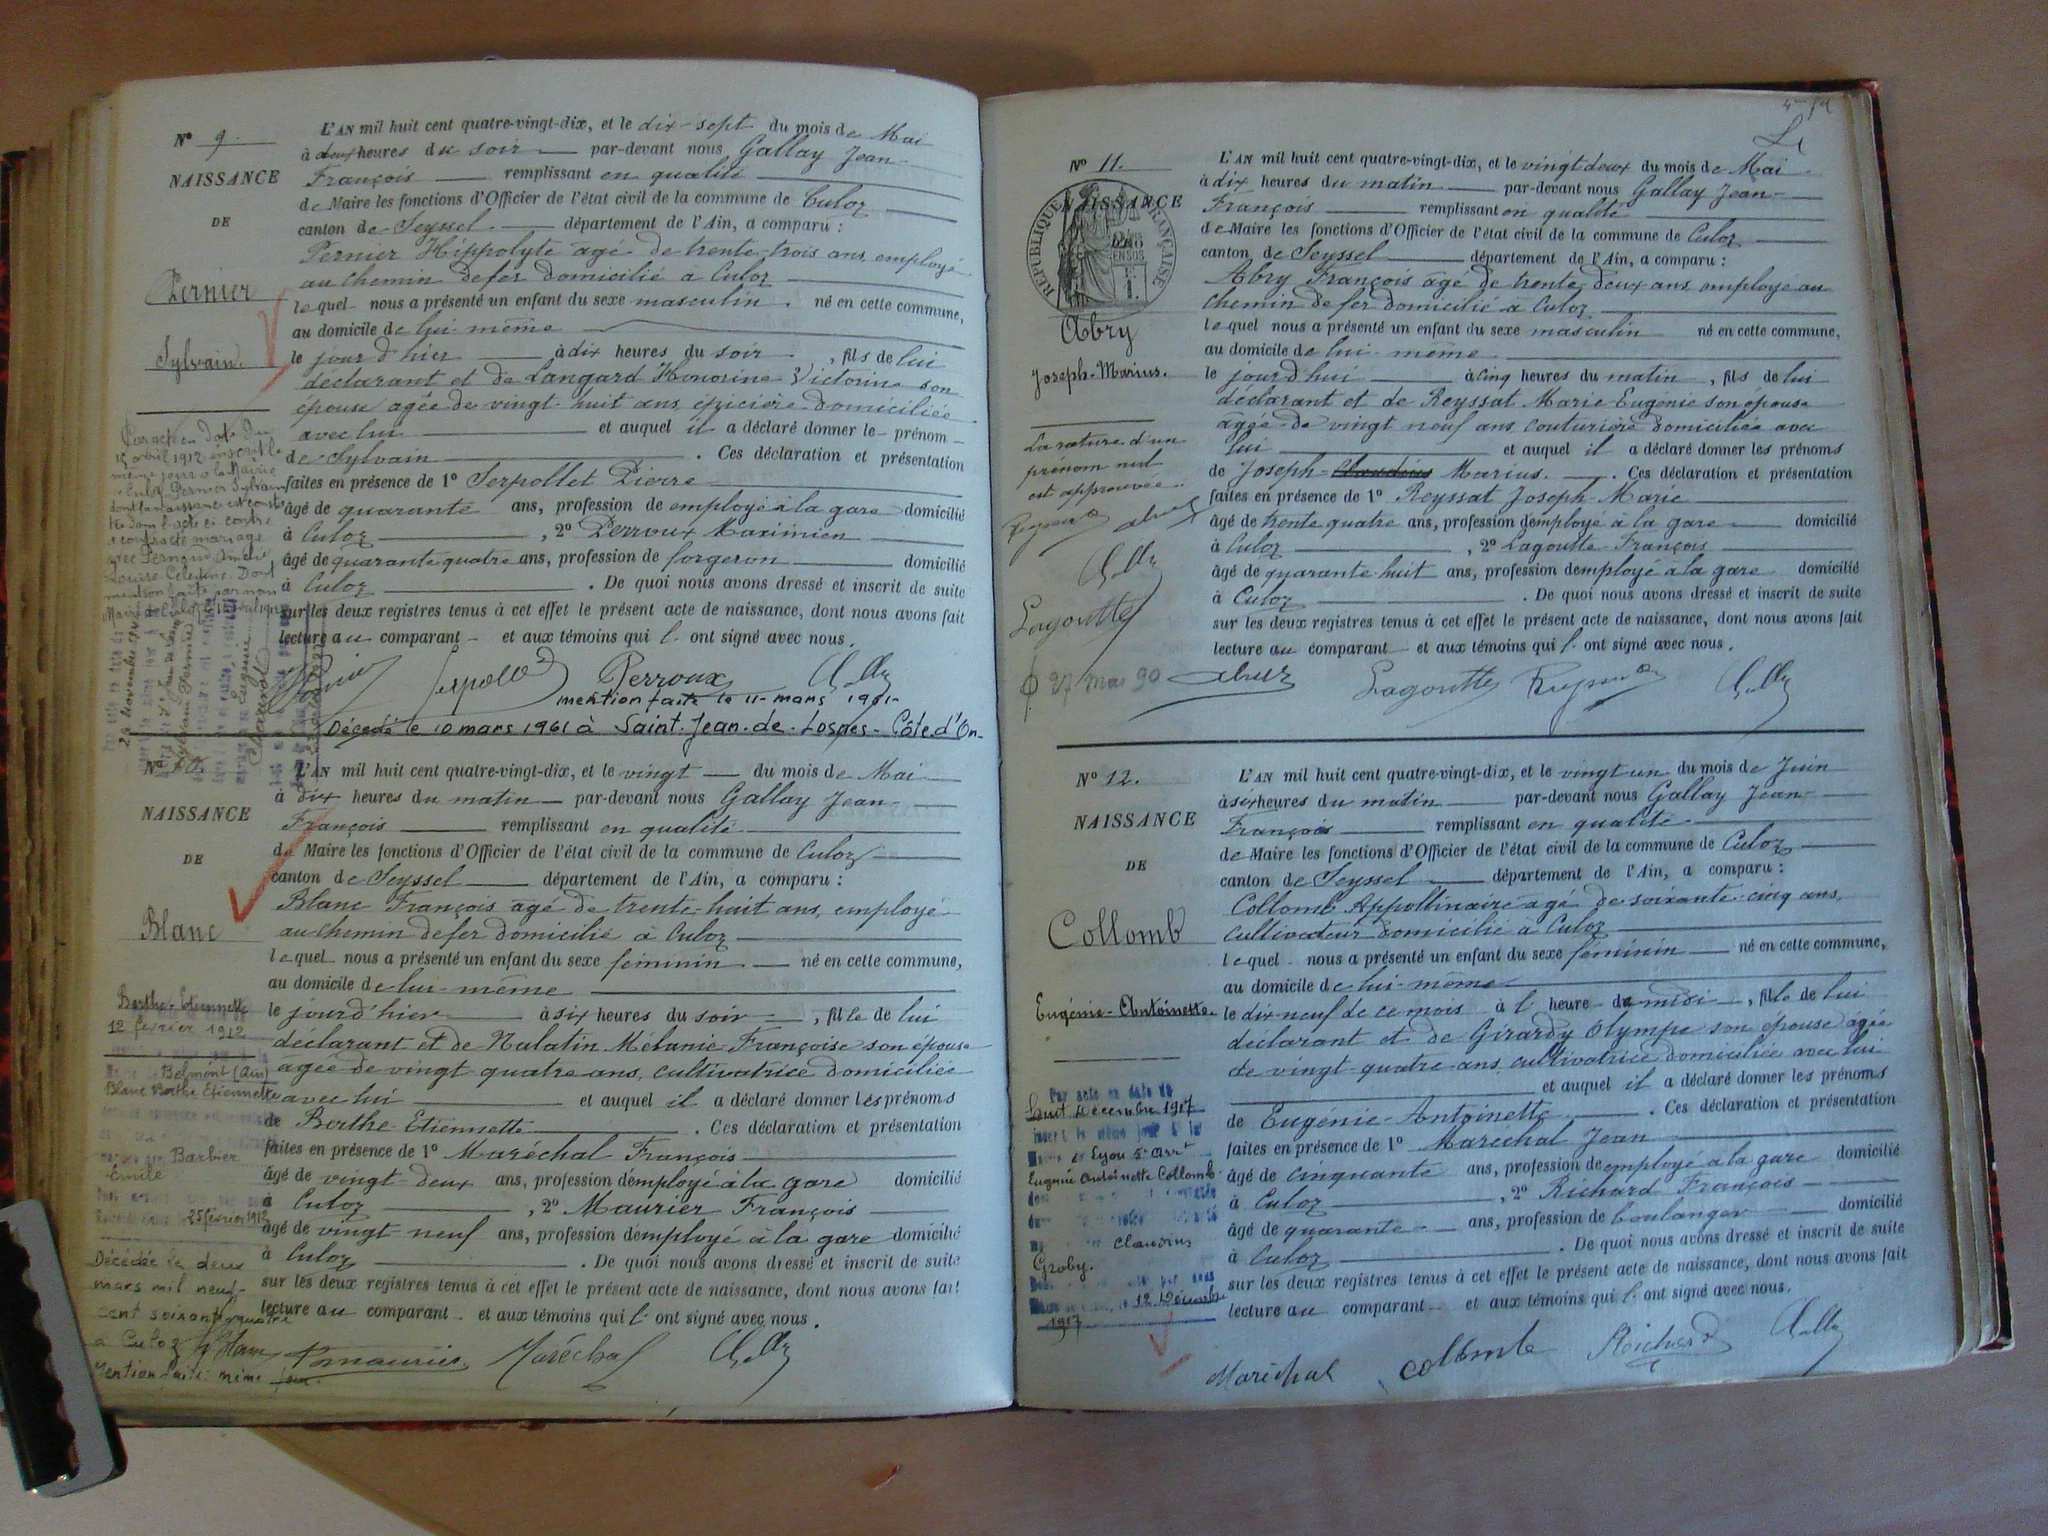 N° 9.
NAISSANCE
DE
Pernier
Sylvain.
L'AN mil huit cent quatre-vingt-dix, et le dix-sept du mois de Mai
à deux heures du soir par-devant nous Gallay Jean-
François remplissant en qualité
de Maire les fonctions d'Officier de l'état civil de la commune de Culoz
canton de Seyssel département de l'Ain, a comparu :
Pernier Hippolyte âgé de trente-trois ans, employé
au chemin de fer domicilié à Culoz
lequel nous a présenté un enfant du sexe masculin. né en cette commune,
au domicile de lui-même
le jour d'hier à dix heures du soir, fils de lui
déclarant et de Langard Honorine Victorine son
épouse agée de vingt-huit ans, épicière domiciliée
avec lui et auquel il a déclaré donner le prénom
de Sylvain. Ces déclaration et présentation
faites en présence de 1° Serpollet Pierre
âgé de quarante ans, profession de employé à la gare domicilié
à Culoz, 2° Perroux Maximien
âgé de quarante quatre ans, profession de forgeron domicilié
à Culoz. De quoi nous avons dressé et inscrit de suite
sur les deux registres tenus à cet effet le présent acte de naissance, dont nous avons fait
lecture au comparant et aux témoins qui l'ont signé avec nous.
Par acte en date du
15 avril 1912 inscrit le
même jour à la Mairie
Culoz Pernier Sylvain
dont la naissance est consta
tée dans l'acte ci contre
a contracté mariage
avec
Louise Célestine. Dont
mention faite par nous
Perroux
mention faite le 11 mars 1961
Décédé le 10 mars 1961 à Saint-Jean-de-Losnes-Côte d'Or
N° 10.
NAISSANCE
DE
Blanc
Berthe-Etiennette
L'AN mil huit cent quatre-vingt-dix, et le vingt du mois de Mai
à dix heures du matin par-devant nous Gallay Jean-
François remplissant en qualité
de Maire les fonctions d'Officier de l'état civil de la commune de Culoz
canton de Seyssel département de l'Ain, a comparu :
Blanc François âgé de trente-huit ans, employé
au chemin de fer domicilié à Culoz
lequel nous a présenté un enfant du sexe féminin né en cette commune,
au domicile de lui-même
le jour d'hier à six heures du soir, fille de lui
déclarant et de Nulatin Mélanie Françoise son épouse
agée de vingt quatre ans, cultivatrice domiciliée
avec lui et auquel il a déclaré donner les prénoms
de Berthe Etiennette. Ces déclaration et présentation
faites en présence de 1° Maréchal François
âgé de vingt-deux ans, profession d'employé à la gare domicilié
à Culoz, 2° Maurier François
âgé de vingt neuf ans, profession d'employé à la gare domicilié
à Culoz. De quoi nous avons dressé et inscrit de suite
sur les deux registres tenus à cet effet le présent acte de naissance, dont nous avons fait
lecture au comparant et aux témoins qui l'ont signé avec nous.
12 février 1912
Belmont (Ain)
Blanc Berthe Etiennette
Barbier
Emile
25 février 1912
Décédée le deux
mars mil neuf
cent soixante quatre
à Culoz
Mention faite même jour.
Maurier Maréchal
N° 11.
NAISSANCE
RÉPUBLIQUE FRANÇAISE
Abry
Joseph-Marius.
L'AN mil huit cent quatre-vingt-dix, et le vingt deux du mois de Mai
à dix heures du matin par-devant nous Gallay Jean-
François remplissant en qualité
de Maire les fonctions d'Officier de l'état civil de la commune de Culoz
canton de Seyssel département de l'Ain, a comparu :
Abry François âgé de trente-deux ans, employé au
chemin de fer domicilié à Culoz
lequel nous a présenté un enfant du sexe masculin né en cette commune,
au domicile de lui-même
le jour d'hui à cinq heures du matin, fils de lui
déclarant et de Reyssat Marie-Eugénie son épouse
agée de vingt neuf ans, couturière domiciliée avec
lui et auquel il a déclaré donner les prénoms
de Joseph-Claudius Marius. Ces déclaration et présentation
faites en présence de 1° Reyssat Joseph-Marie
âgé de trente quatre ans, profession d'employé à la gare domicilié
à Culoz, 2° Lagoutte François
âgé de quarante-huit ans, profession d'employé à la gare domicilié
à Culoz. De quoi nous avons dressé et inscrit de suite
sur les deux registres tenus à cet effet le présent acte de naissance, dont nous avons fait
lecture au comparant et aux témoins qui l'ont signé avec nous.
La rature d'un
prénom nul
est approuvée.
Lagoutte
27 mai 90
Lagoutte
N° 12.
NAISSANCE
DE
Collomb
Eugénie-Antoinette.
L'AN mil huit cent quatre-vingt-dix, et le vingt un du mois de Juin
à six heures du matin par-devant nous Gallay Jean-
François remplissant en qualité
de Maire les fonctions d'Officier de l'état civil de la commune de Culoz
canton de Seyssel département de l'Ain, a comparu :
Collomb Appollinaire âgé de soixante-cinq ans,
cultivateur domicilié à Culoz
lequel nous a présenté un enfant du sexe féminin né en cette commune,
au domicile de lui-même
le dix-neuf de ce mois à l'heure de midi, fille de lui
déclarant et de Girardy Olympe son épouse agée
de vingt-quatre ans cultivatrice domiciliée avec lui
et auquel il a déclaré donner les prénoms
de Eugénie-Antoinette. Ces déclaration et présentation
faites en présence de 1° Maréchal Jean
âgé de cinquante ans, profession de employé à la gare domicilié
à Culoz, 2° Richard François
âgé de quarante ans, profession de boulanger domicilié
à Culoz. De quoi nous avons dressé et inscrit de suite
sur les deux registres tenus à cet effet le présent acte de naissance, dont nous avons fait
lecture au comparant et aux témoins qui l'ont signé avec nous.
Par acte en date du
huit Décembre 1917
inscrit le même jour à la
Mairie de Lyon 5e arrt
Eugénie Antoinette Collomb
Claudius
Groby.
12 Décembre
1917
Maréchal Collomb Richard